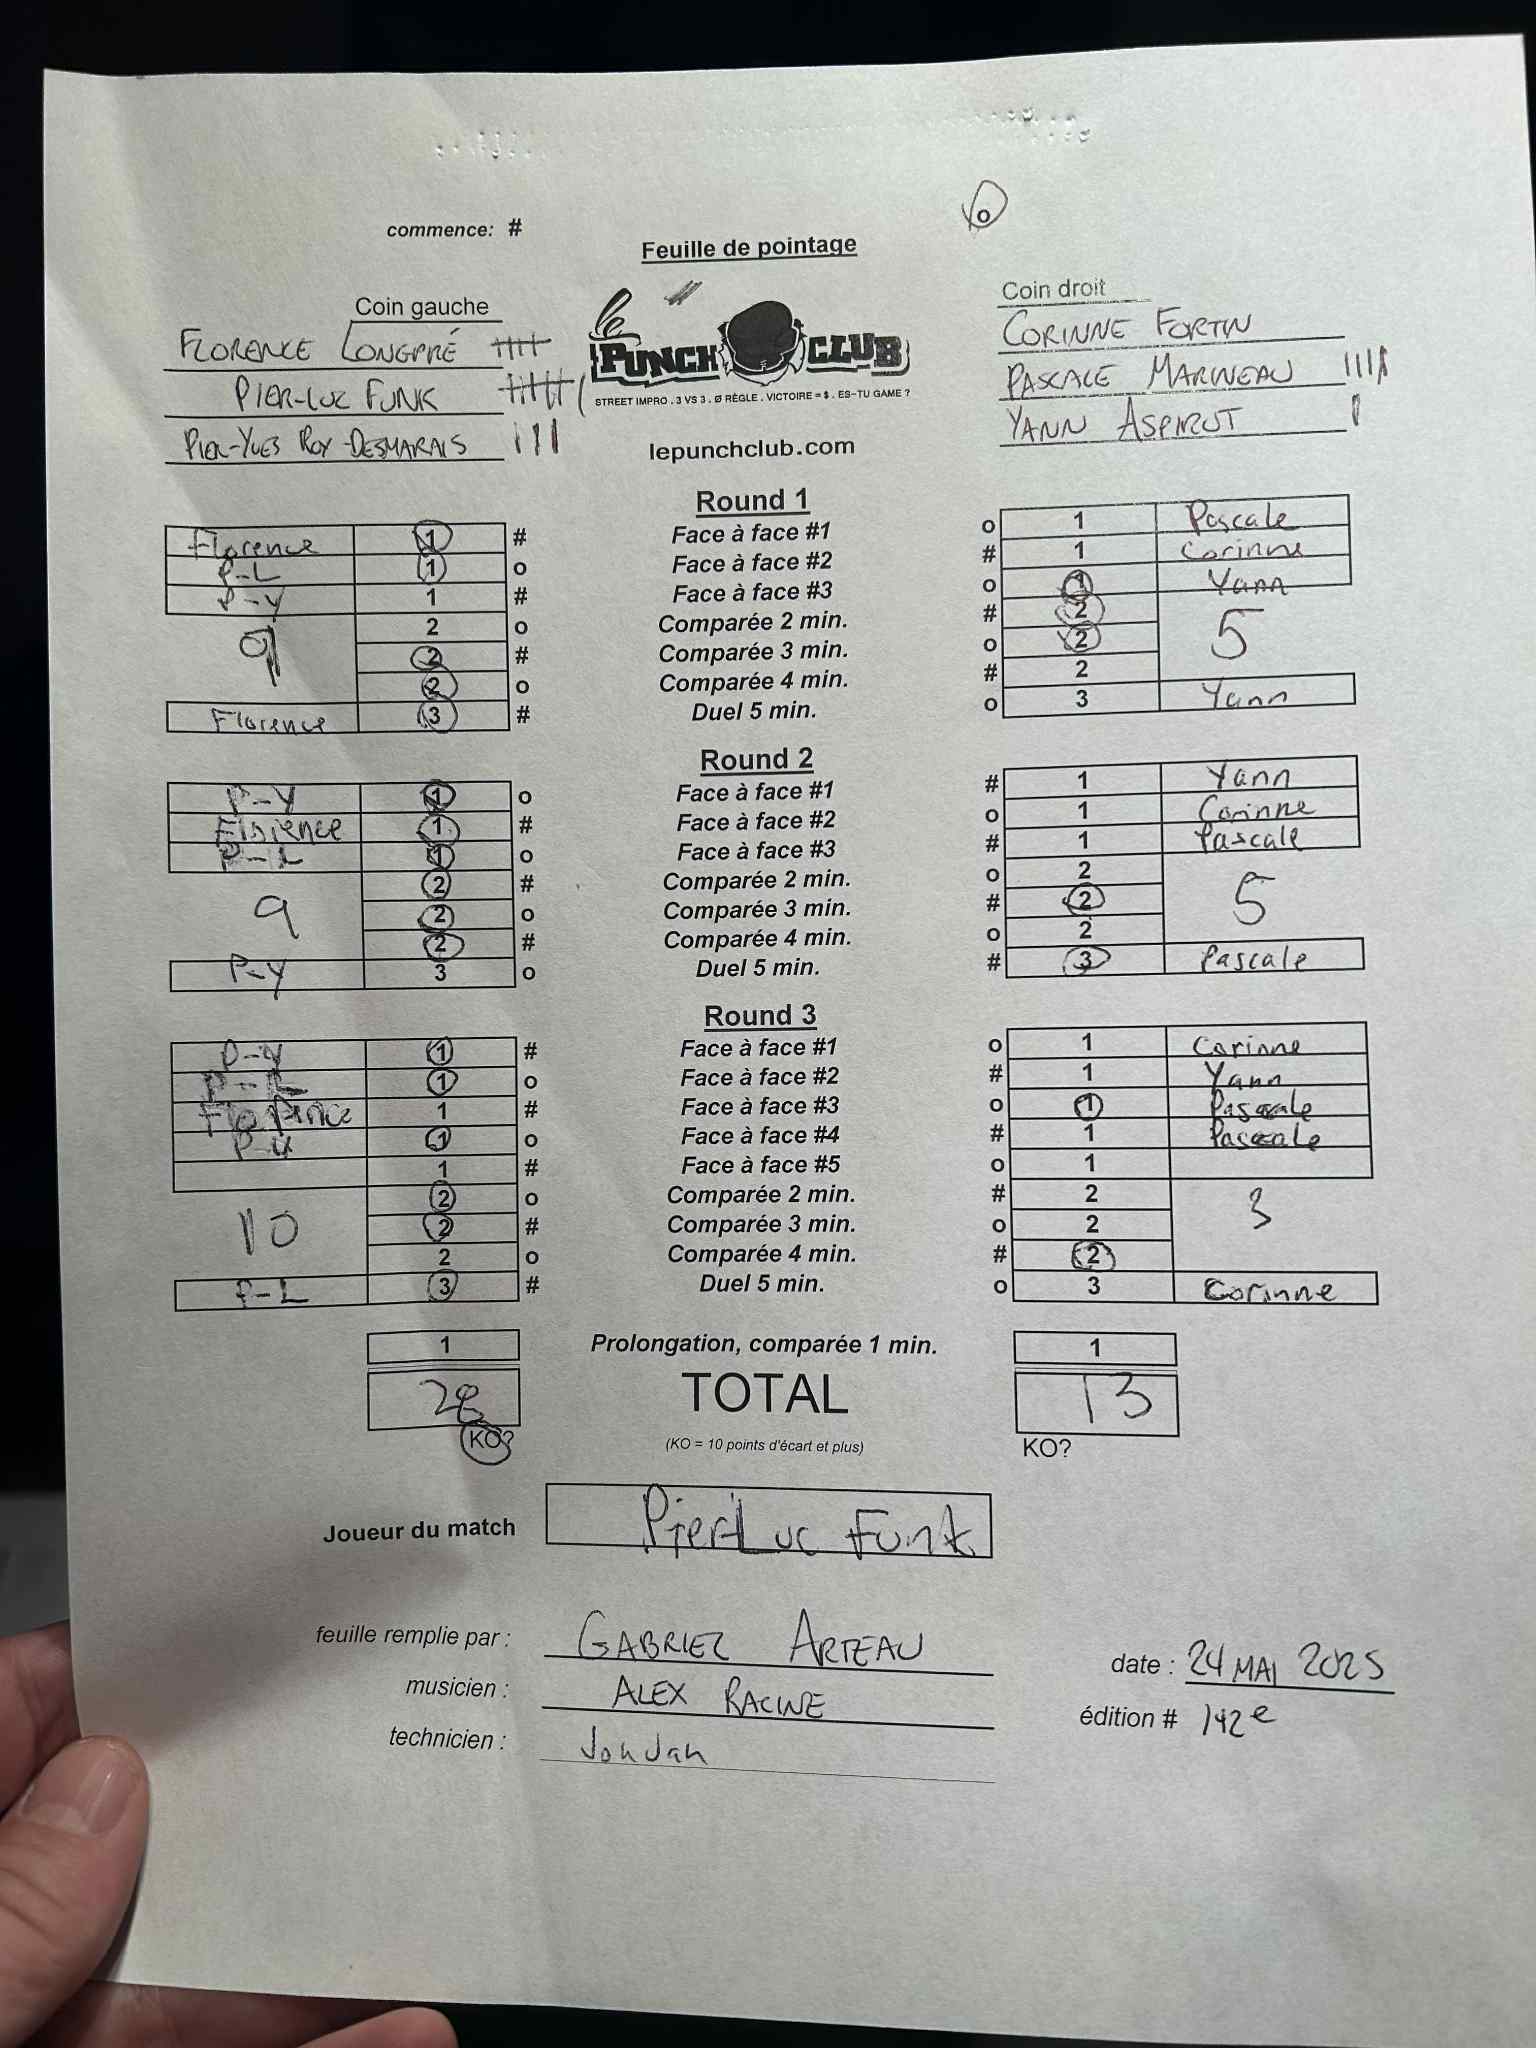 commence: # o
Feuille de pointage
Coin gauche
Coin droit
FLORENCE LONGPRÉ
PIER-LUC FUNK
PIER-YVES ROY-DESMARAIS
le PUNCH CLUB
STREET IMPRO . 3 VS 3 . Ø RÈGLE . VICTOIRE = $ . ES-TU GAME ?
lepunchclub.com
CORINNE FORTIN
PASCALE MARINEAU
YANN ASPIROT
Round 1
Florence 1 # Face à face #1 o 1 Pascale
P-L 1 o Face à face #2 # 1 Corinne
P-Y 1 # Face à face #3 o 1 Yann
2 o Comparée 2 min. # 2
9 2 # Comparée 3 min. o 2 5
2 o Comparée 4 min. # 2
Florence 3 # Duel 5 min. o 3 Yann
Round 2
P-Y 1 o Face à face #1 # 1 Yann
Florence 1 # Face à face #2 o 1 Corinne
P-L 1 o Face à face #3 # 1 Pascale
2 # Comparée 2 min. o 2
9 2 o Comparée 3 min. # 2 5
2 # Comparée 4 min. o 2
P-Y 3 o Duel 5 min. # 3 Pascale
Round 3
P-Y 1 # Face à face #1 o 1 Corinne
P-L 1 o Face à face #2 # 1 Yann
Florence 1 # Face à face #3 o 1 Pascale
1 o Face à face #4 # 1 Pascale
1 # Face à face #5 o 1
2 o Comparée 2 min. # 2
10 2 # Comparée 3 min. o 2 3
2 o Comparée 4 min. # 2
P-L 3 # Duel 5 min. o 3 Corinne
1 Prolongation, comparée 1 min. 1
28 TOTAL 13
KO? (KO = 10 points d'écart et plus) KO?
Joueur du match Pier-Luc Funk
feuille remplie par : GABRIEL ARTEAU
date : 24 MAI 2025
musicien : ALEX RACINE
édition # 142e
technicien : JonJan